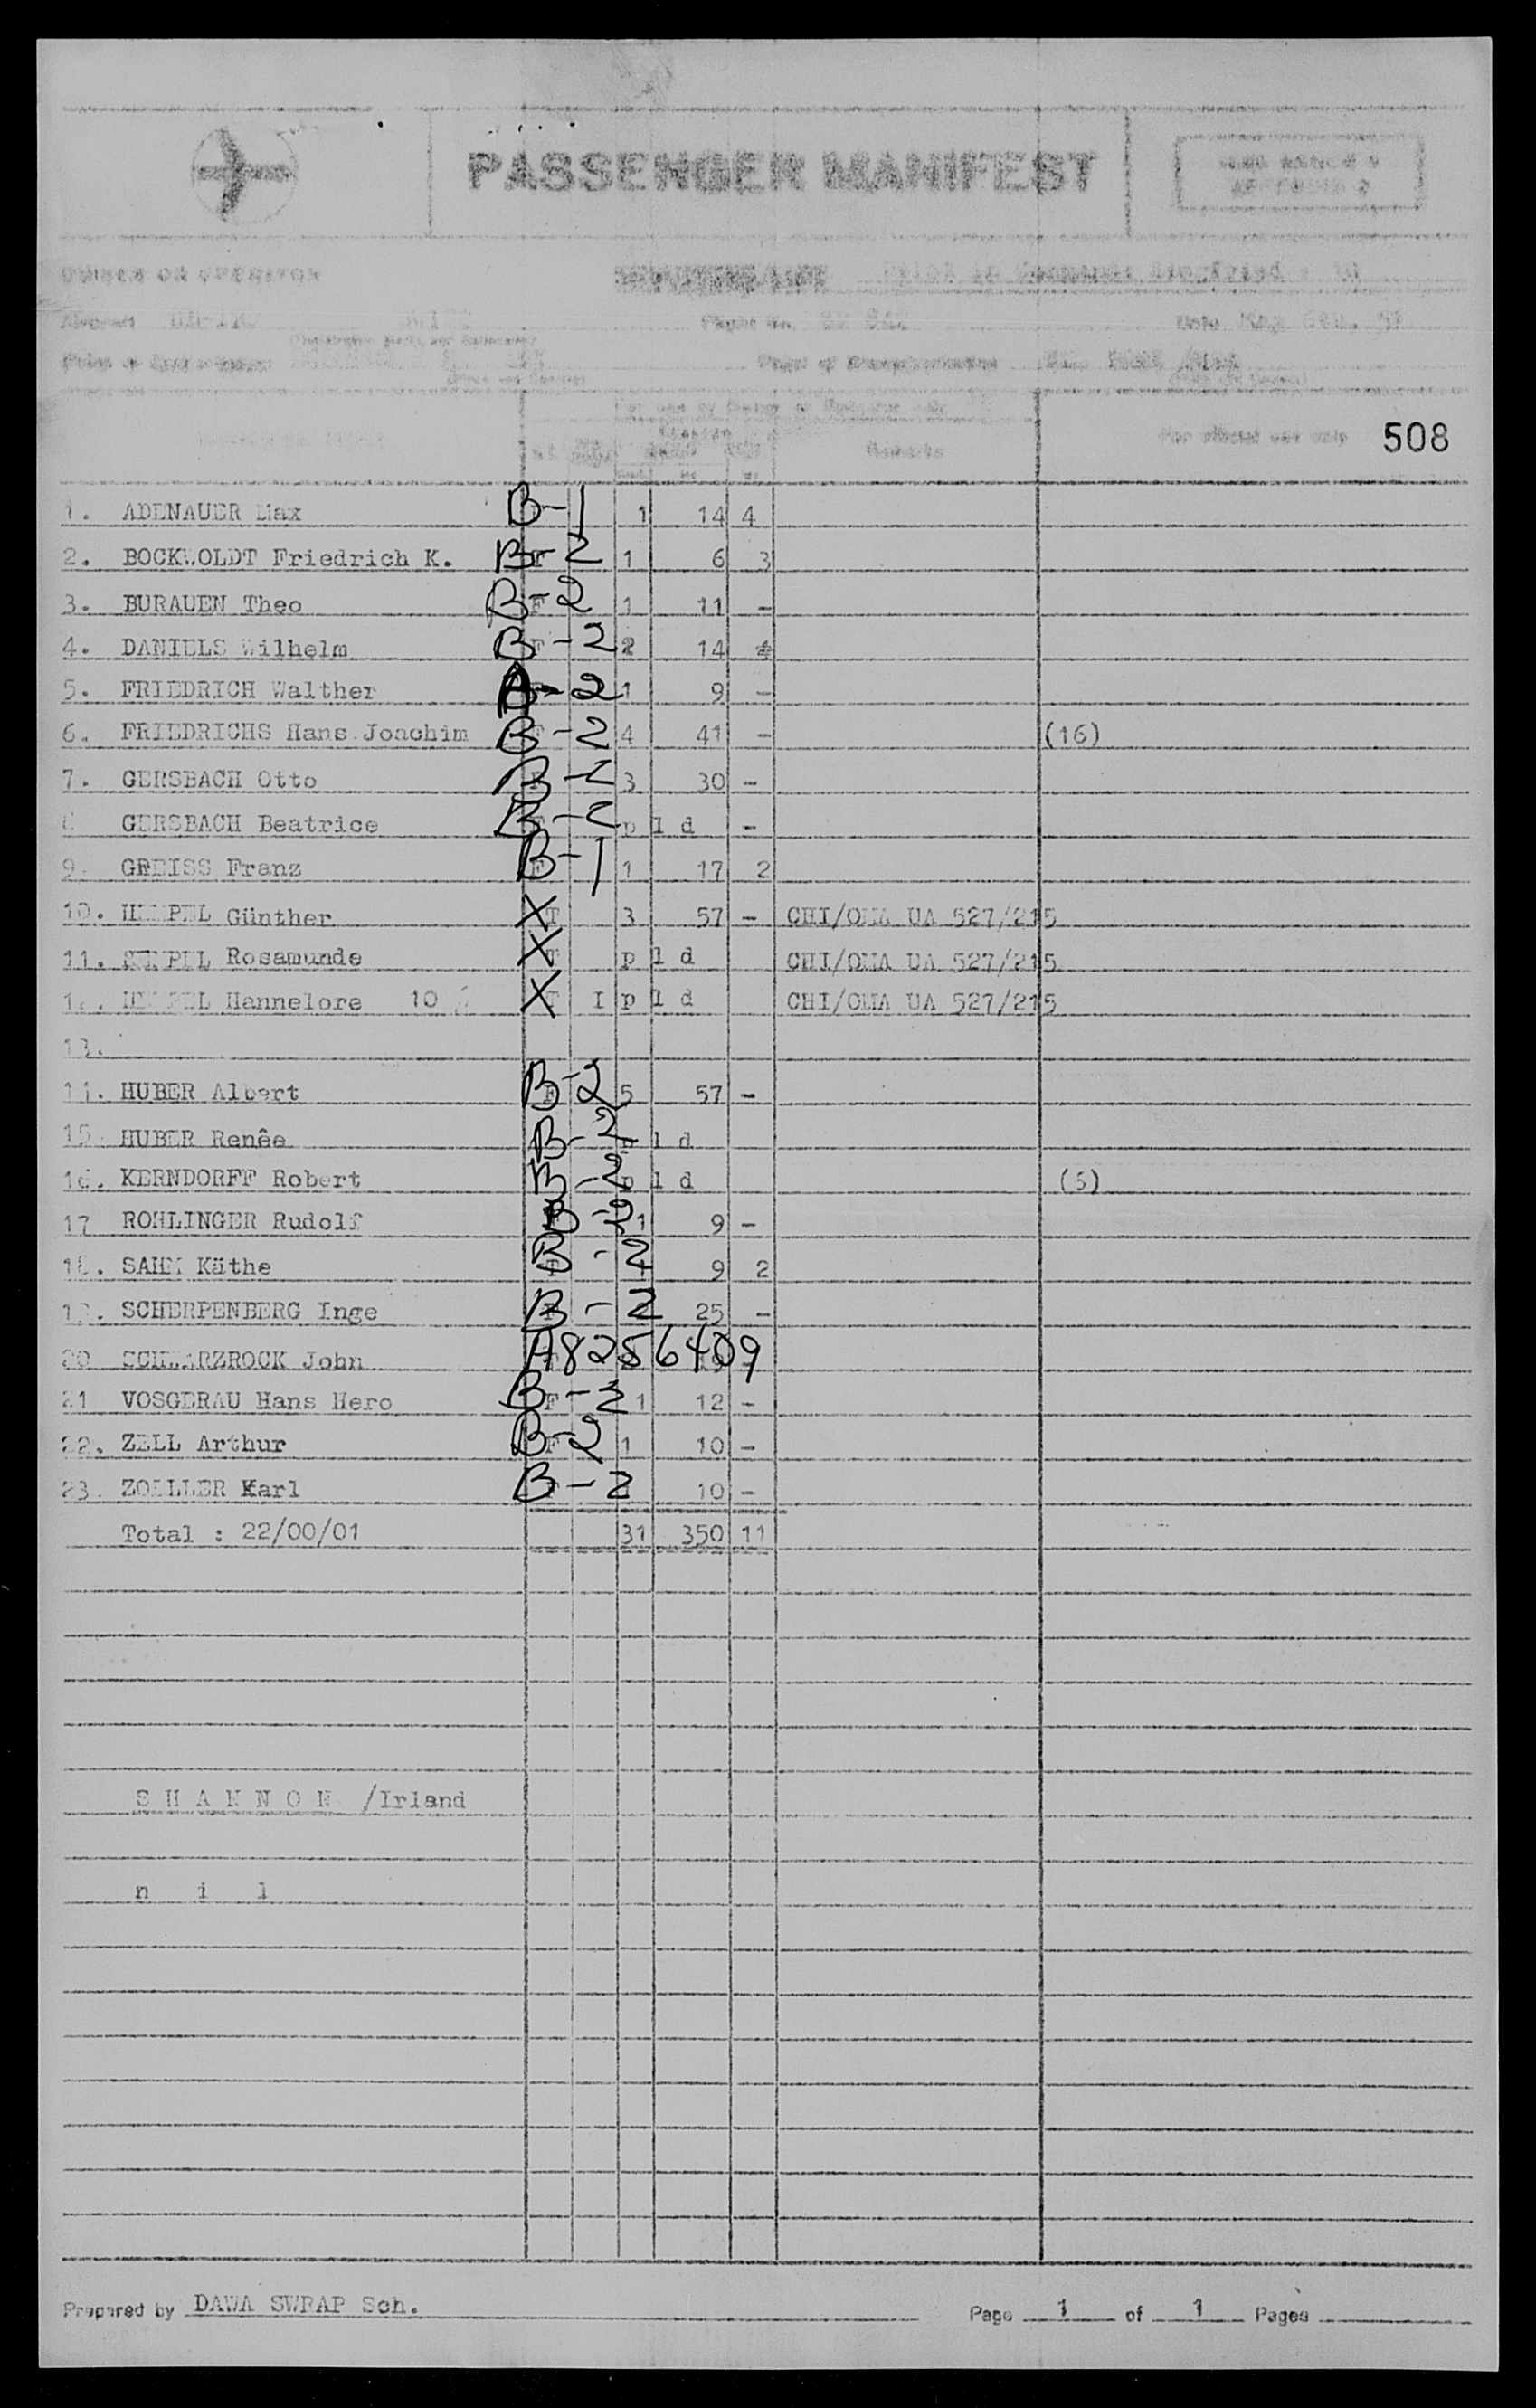 PASSENGER MANIFEST
OWNER OR OPERATOR
Flight No.
Date May 6th. 5
For official use only 508
Remarks
1. ADENAUER Max B-1 1 14 4
2. BOCKWOLDT Friedrich K. B-2 1 6 3
3. BURAUEN Theo B-2 1 11 -
4. DANIELS Wilhelm B-2 2 14 4
5. FRIEDRICH Walther B-2 1 9 -
6. FRIEDRICHS Hans Joachim B-2 4 41 - (16)
7. GERSBACH Otto B-2 3 30 -
8 GERSBACH Beatrice B-2 p l d -
9. GREISS Franz B-1 1 17 2
10. HEMPEL Günther X T 3 57 - CHI/OMA UA 527/215
11. HEMPEL Rosamunde X T p l d CHI/OMA UA 527/215
12. HEMPEL Hannelore 10 X T I p l d CHI/OMA UA 527/215
13.
14. HUBER Albert B-2 5 57 -
15. HUBER Renêe B-2 p l d
16. KERNDORFF Robert B-2 p l d (5)
17 ROHLINGER Rudolf B-2 1 9 -
18. SAHM Käthe B-2 9 2
19. SCHERPENBERG Inge B-2 25 -
20 SCHWARZROCK John A8256409
21 VOSGERAU Hans Hero B-2 1 12 -
22. ZELL Arthur B-2 1 10 -
23. ZOELLER Karl B-2 10 -
Total : 22/00/01 31 350 11
S H A N N O N /Irland
n i l
Prepared by DAWA SWPAP Sch. Page 1 of 1 Pages